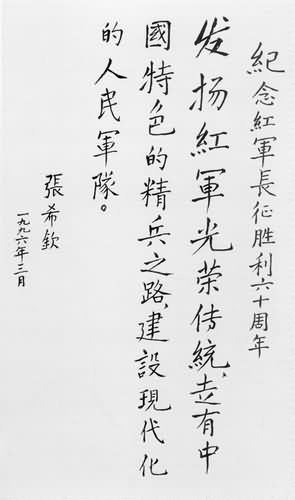 紀念紅軍長征胜利六十周年
发扬紅軍光荣传統、走有中
國特色的精兵之路、建設現代化
的人民軍隊。
張希欽
一九九六年三月